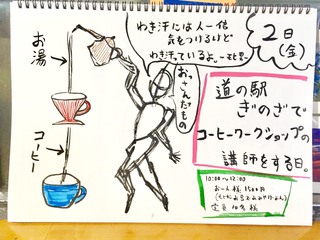 2日
(金)
わき汗には人一倍
気をつけるけど
わき汗っているよ。
おっさんだもの
お湯
コーヒー
道の駅
ぎのざで
コーヒーワークショップの
講師をする日。
10:00〜12:00
お一人様 1500円
定員 10名様